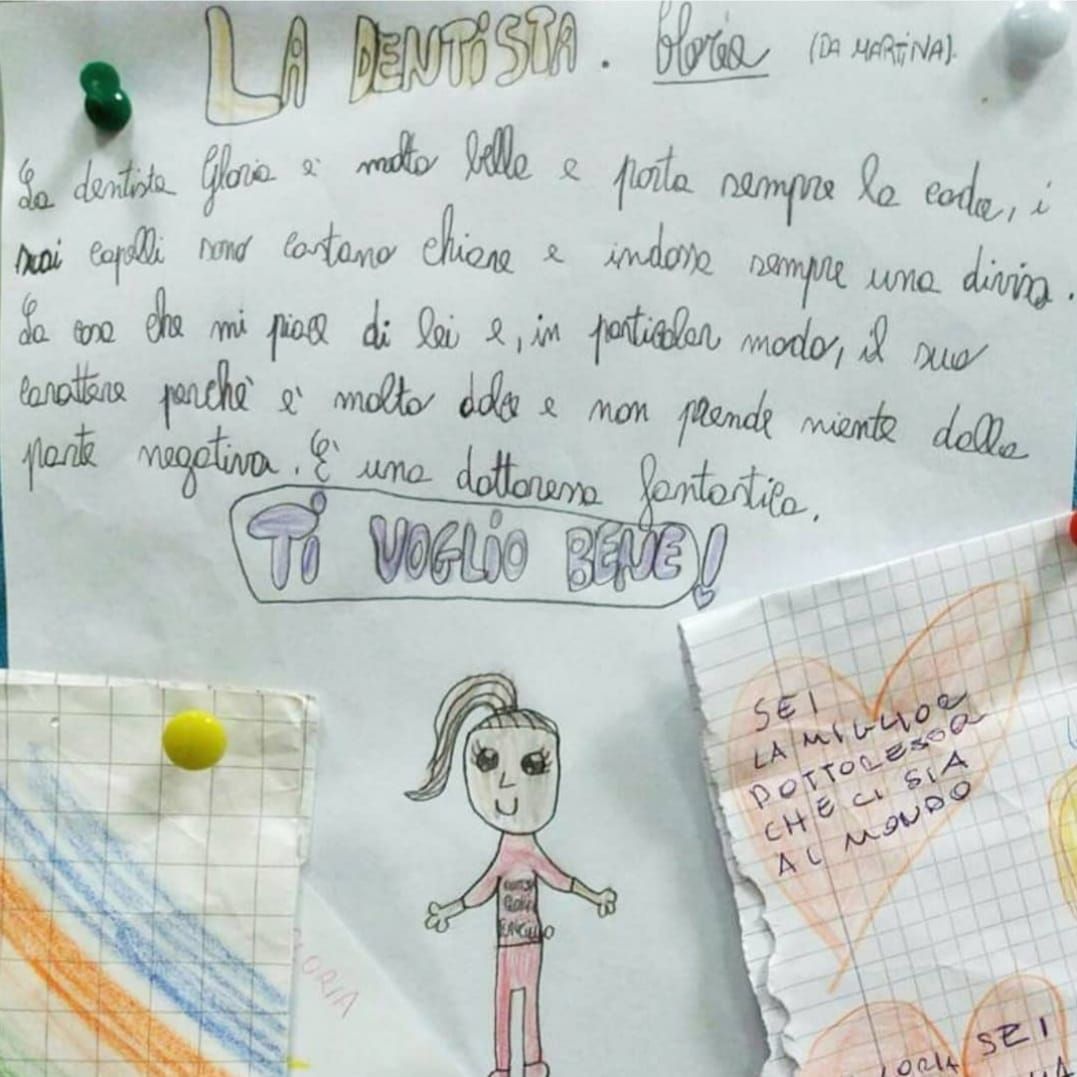 LA DENTISTA. Gloria (DA MARTINA).
La dentista Gloria è molto bella e porta sempre la coda, i
suoi capelli sono castano chiaro e indossa sempre una divisa.
La cosa che mi piace di lei e, in particolar modo, il suo
carattere perchè è molto dolce e non prende niente dalla
parte negativa. È una dottoressa fantastica.
TI VOGLIO BENE!
SEI
LA MIGLIOR
DOTTORESSA
CHE CI SIA
AL MONDO
ORIA
LORIA SEI